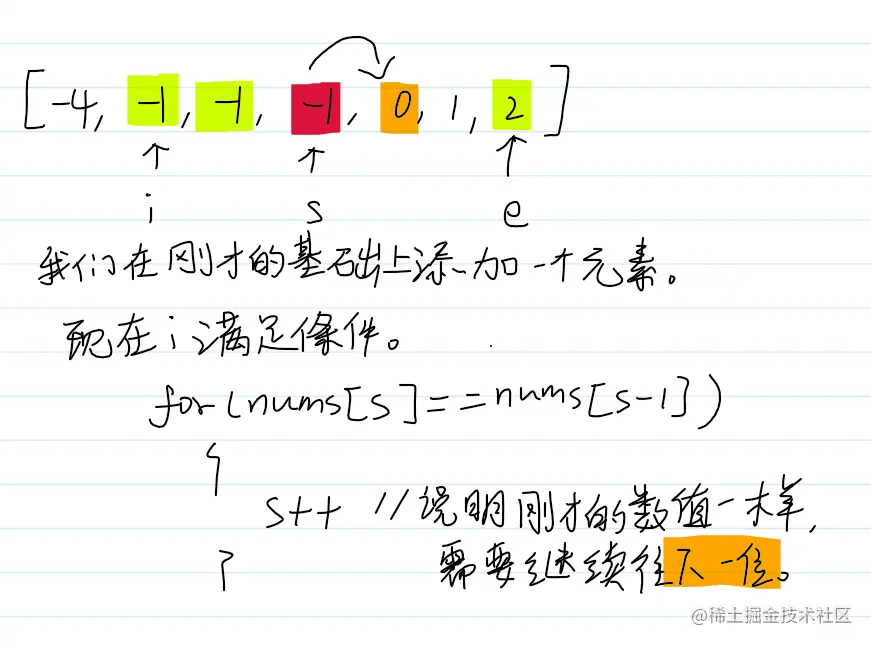 [-4, -1, -1, -1, 0, 1, 2]
i s e
我们在刚才的基础上添加一个元素。
现在i满足條件。
for(nums[s]==nums[s-1])
{
s++ //说明刚才的数值一样,
需要继续往下一位。
}
@稀土掘金技术社区